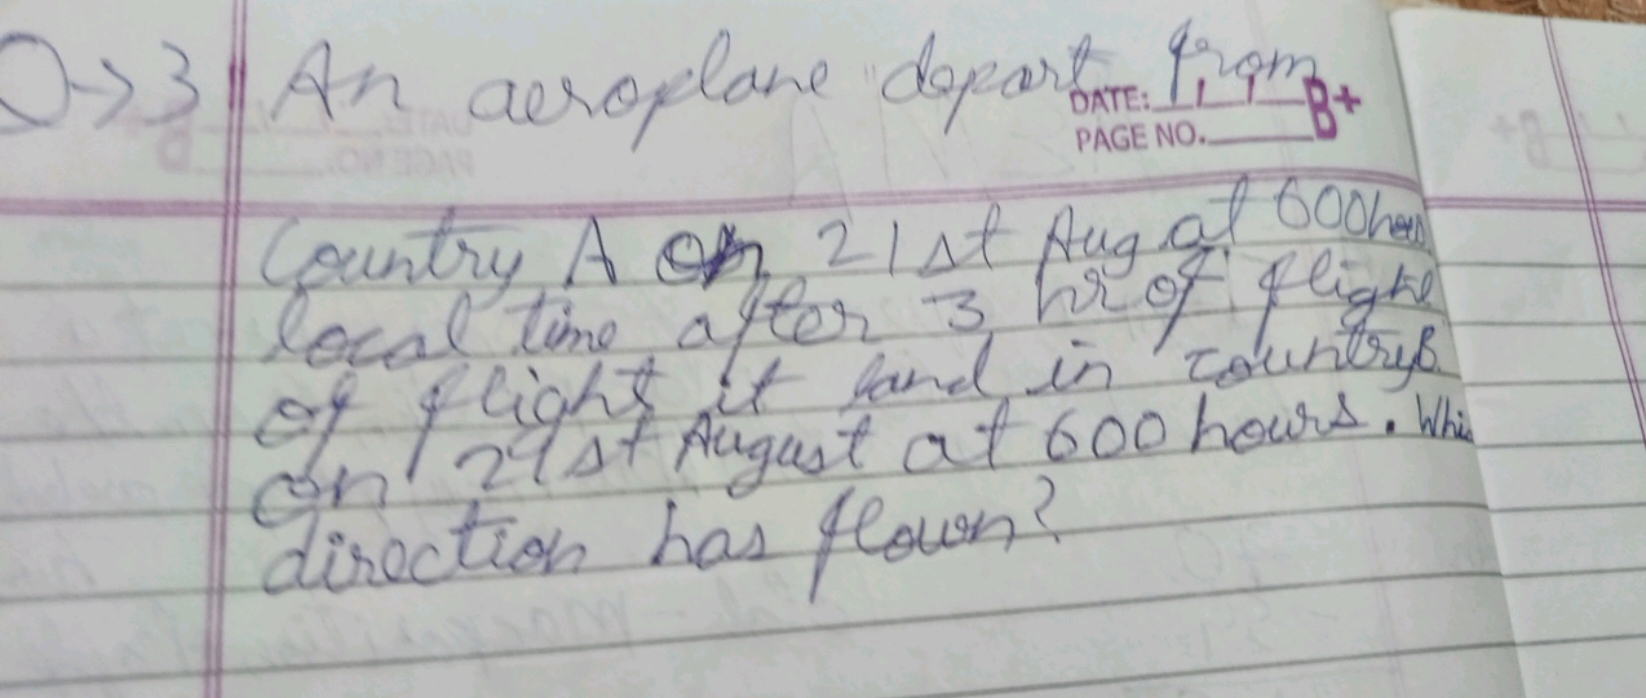 Q→3 An aeroplane depart from
DATE:
PAGE NO.
B+
Country A on 21st Aug at 600hours
local time after 3 hr of flight
of flight it land in countryB
on 21st August at 600 hours. Whi
direction has flown?